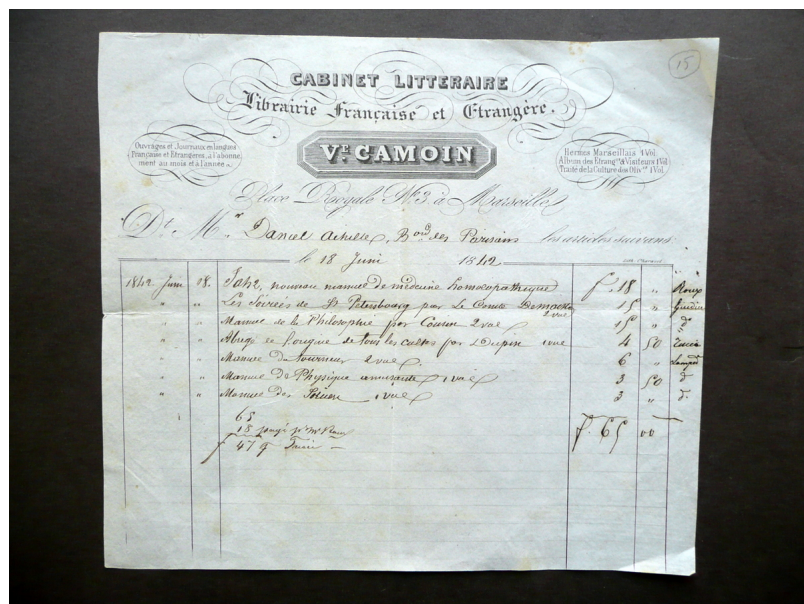 15
CABINET LITTERAIRE
Librairie Française et Etrangère.
Ouvrages et Journaux en langues
Française et Etrangères, à l'abonne
ment au mois et à l'année.
VE. CAMOIN
Hermes Marseillais 1 Vol.
Album des Etrang.rs & Visiteurs 1 Vol
Traité de la Culture des Oliv.rs 1 Vol.
Place Royale No. 3 à Marseille
Dt. Mr. Daniel Achille, Bord des Parisiens les articles suivans
le 18 Juin 1842
1842 Juin 18. Jahr, nouveau manuel de médecine homoeopathique f 18 " Roux
" " Les Soirées de St Petersbourg par Le Comte Demaistre 2 vol 15 "
" " Manuel de la Philosophie par Cousin 2 vol 15 " do
" " Abrégé de l'origine de tous les cultes par Dupuis 1 vol 4 50
" " Manuel du Tourneur 2 vol 6 "
" " Manuel de Physique amusante 1 vol 3 50 d
" " Manuel des 1 vol 3 " d.
65 f. 65 00
18 payé pr Mr Roux
f 47